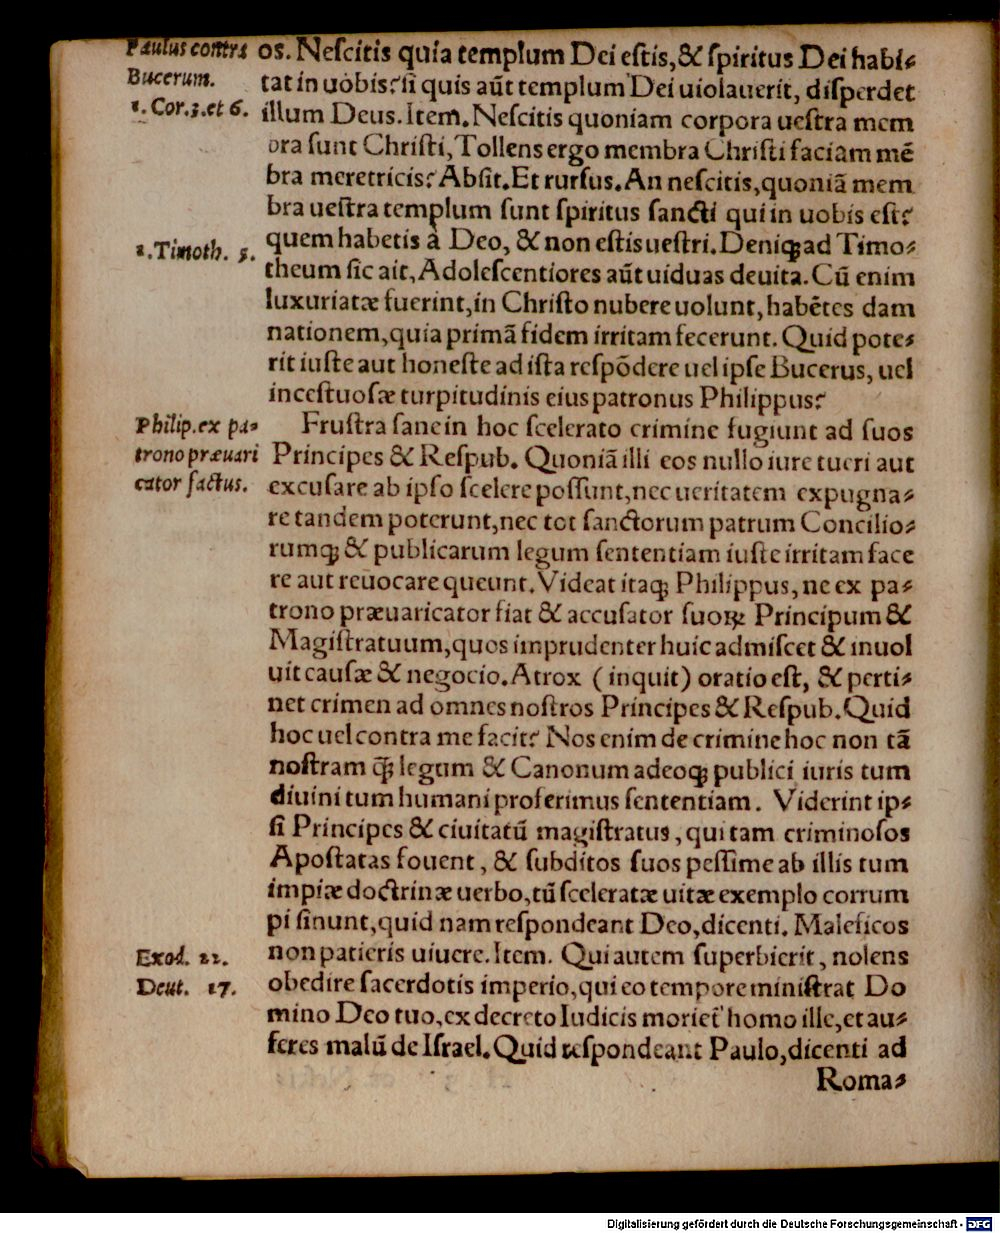 Paulus contra
Bucerum.
1. Cor.3.et 6.
os. Neſcitis quia templum Dei eſtis,& ſpiritus Dei habi⸗
tat in uobis? ſi quis aūt templum Dei uiolauerit, diſperdet
illum Deus. Item. Neſcitis quoniam corpora ueſtra mem
bra ſunt Chriſti, Tollens ergo membra Chriſti faciam mē
bra meretricis? Abſit. Et rurſus. An neſcitis, quoniā mem
bra ueſtra templum ſunt ſpiritus ſancti qui in uobis eſt?
quem habetis à Deo, & non eſtis ueſtri. Deniqꝫ ad Timo⸗
1.Timoth. 5.
theum ſic ait, Adoleſcentiores aūt uiduas deuita. Cū enim
luxuriatæ fuerint, in Chriſto nubere uolunt, habētes dam
nationem, quia primā fidem irritam fecerunt. Quid pote⸗
rit iuſte aut honeſte ad iſta reſpōdere uel ipſe Bucerus, uel
inceſtuoſæ turpitudinis eius patronus Philippus?
Philip.ex pa⸗
trono præuari
cator factus.
Fruſtra ſane in hoc ſcelerato crimine fugiunt ad ſuos
Principes & Reſpub. Quoniā illi eos nullo iure tueri aut
excuſare ab ipſo ſcelere poſſunt, nec ueritatem expugna⸗
re tandem poterunt, nec tot ſanctorum patrum Concilio⸗
rumqꝫ & publicarum legum ſententiam iuſte irritam face
re aut reuocare queunt. Videat itaqꝫ Philippus, ne ex pa⸗
trono præuaricator fiat & accuſator ſuoꝝ Principum &
Magiſtratuum, quos imprudenter huic admiſcet & inuol
uit cauſæ & negocio. Atrox (inquit) oratio eſt, & perti⸗
net crimen ad omnes noſtros Principes & Reſpub. Quid
hoc uel contra me facit? Nos enim de crimine hoc non tā
noſtram q̄ꝫ legum & Canonum adeoqꝫ publici iuris tum
diuini tum humani proferimus ſententiam. Viderint ip⸗
ſi Principes & ciuitatū magiſtratus, qui tam criminoſos
Apoſtatas fouent, & ſubditos ſuos peſſime ab illis tum
impiæ doctrinæ uerbo, tū ſceleratæ uitæ exemplo corrum
pi ſinunt, quid nam reſpondeant Deo, dicenti. Maleficos
Exod. 22.
non patieris uiuere. Item. Qui autem ſuperbierit, nolens
Deut. 17.
obedire ſacerdotis imperio, qui eo tempore miniſtrat Do
mino Deo tuo, ex decreto Iudicis moriet' homo ille, et au⸗
feres malū de Iſrael. Quid reſpondeant Paulo, dicenti ad
Roma⸗
Digitalisierung gefördert durch die Deutsche Forschungsgemeinschaft - DFG